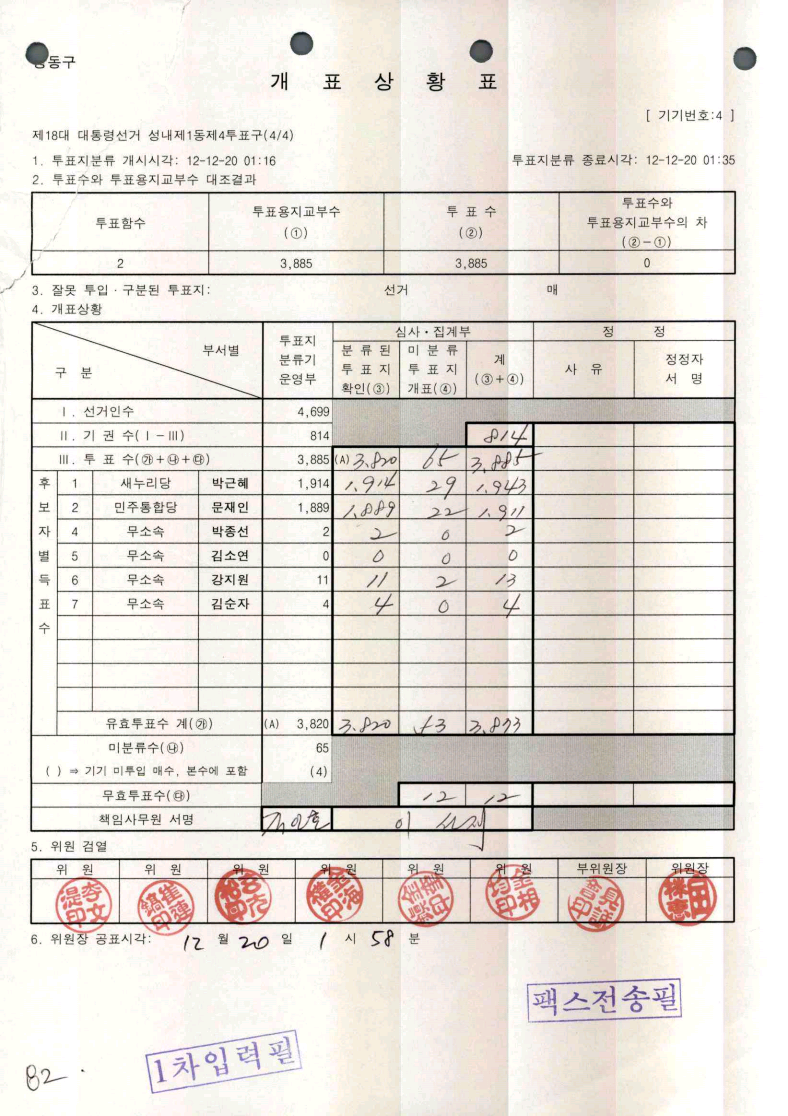 강동구
개 표 상 황 표
[ 기기번호:4 ]
제18대 대통령선거 성내제1동제4투표구(4/4)
1. 투표지분류 개시시각: 12-12-20 01:16 투표지분류 종료시각: 12-12-20 01:35
2. 투표수와 투표용지교부수 대조결과
투표함수 투표용지교부수 (①) 투 표 수 (②) 투표수와 투표용지교부수의 차 (②-①)
2 3,885 3,885 0
3. 잘못 투입·구분된 투표지: 선거 매
4. 개표상황
구 분 부서별 투표지 분류기 운영부 심사·집계부 정 정
분 류 된 투 표 지 확인(③) 미 분 류 투 표 지 개표(④) 계 (③+④) 사 유 정정자 서 명
Ⅰ. 선거인수 4,699
Ⅱ. 기 권 수(Ⅰ-Ⅲ) 814 814
Ⅲ. 투 표 수(㉮+㉯+㉰) 3,885 (A) 3,820 65 3,885
후보자별득표수
1 새누리당 박근혜 1,914 1,914 29 1,943
2 민주통합당 문재인 1,889 1,889 22 1,911
4 무소속 박종선 2 2 0 2
5 무소속 김소연 0 0 0 0
6 무소속 강지원 11 11 2 13
7 무소속 김순자 4 4 0 4
유효투표수 계(㉮) (A) 3,820 3,820 53 3,873
미분류수(㉯) 65
( ) ⇒ 기기 미투입 매수, 본수에 포함 (4)
무효투표수(㉰) 12 12
책임사무원 서명
5. 위원 검열
위 원 위 원 위 원 위 원 위 원 위 원 부위원장 위원장
6. 위원장 공표시각: 12 월 20 일 1 시 58 분
팩스전송필
1차입력필
82.